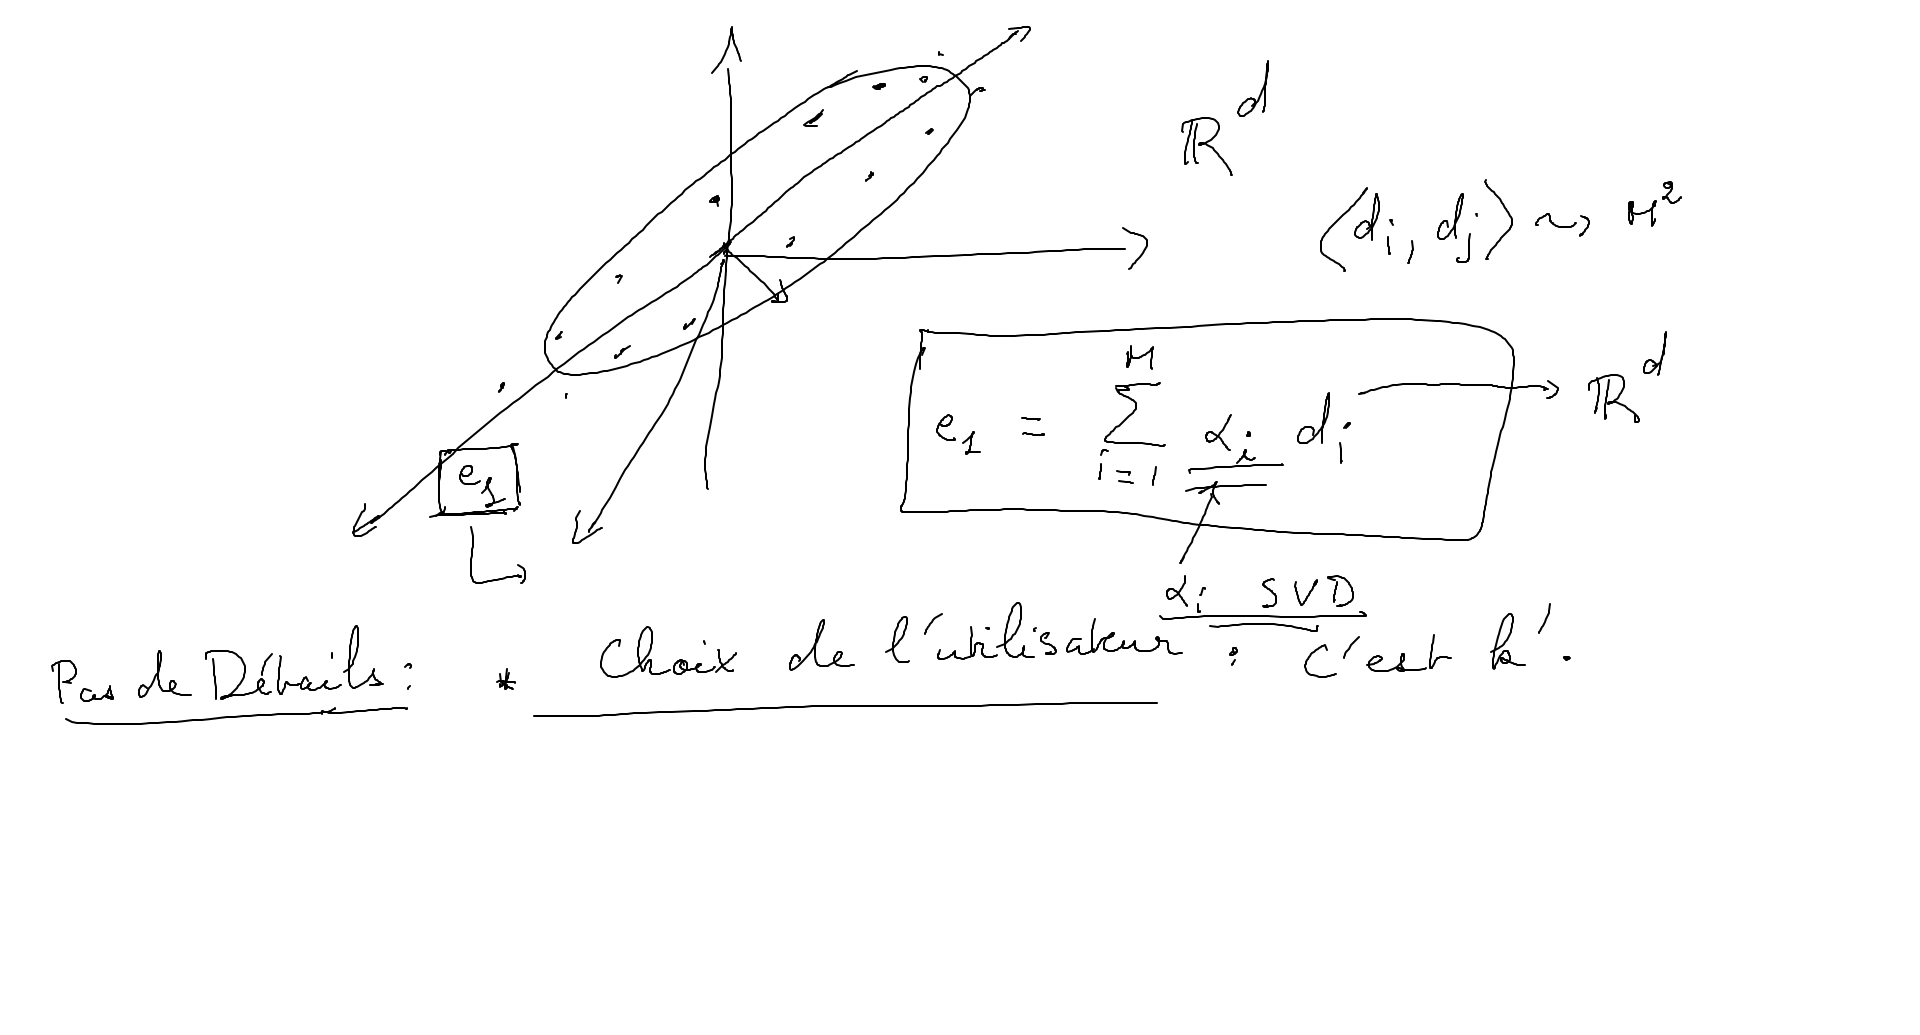 ℝ^d
⟨d_i, d_j⟩ ~> M²
e_1 = Σ_{i=1}^{M} α_i d_i → ℝ^d
e_1
α_i SVD
Pas de Détails : * Choix de l'utilisateur : C'est k'.